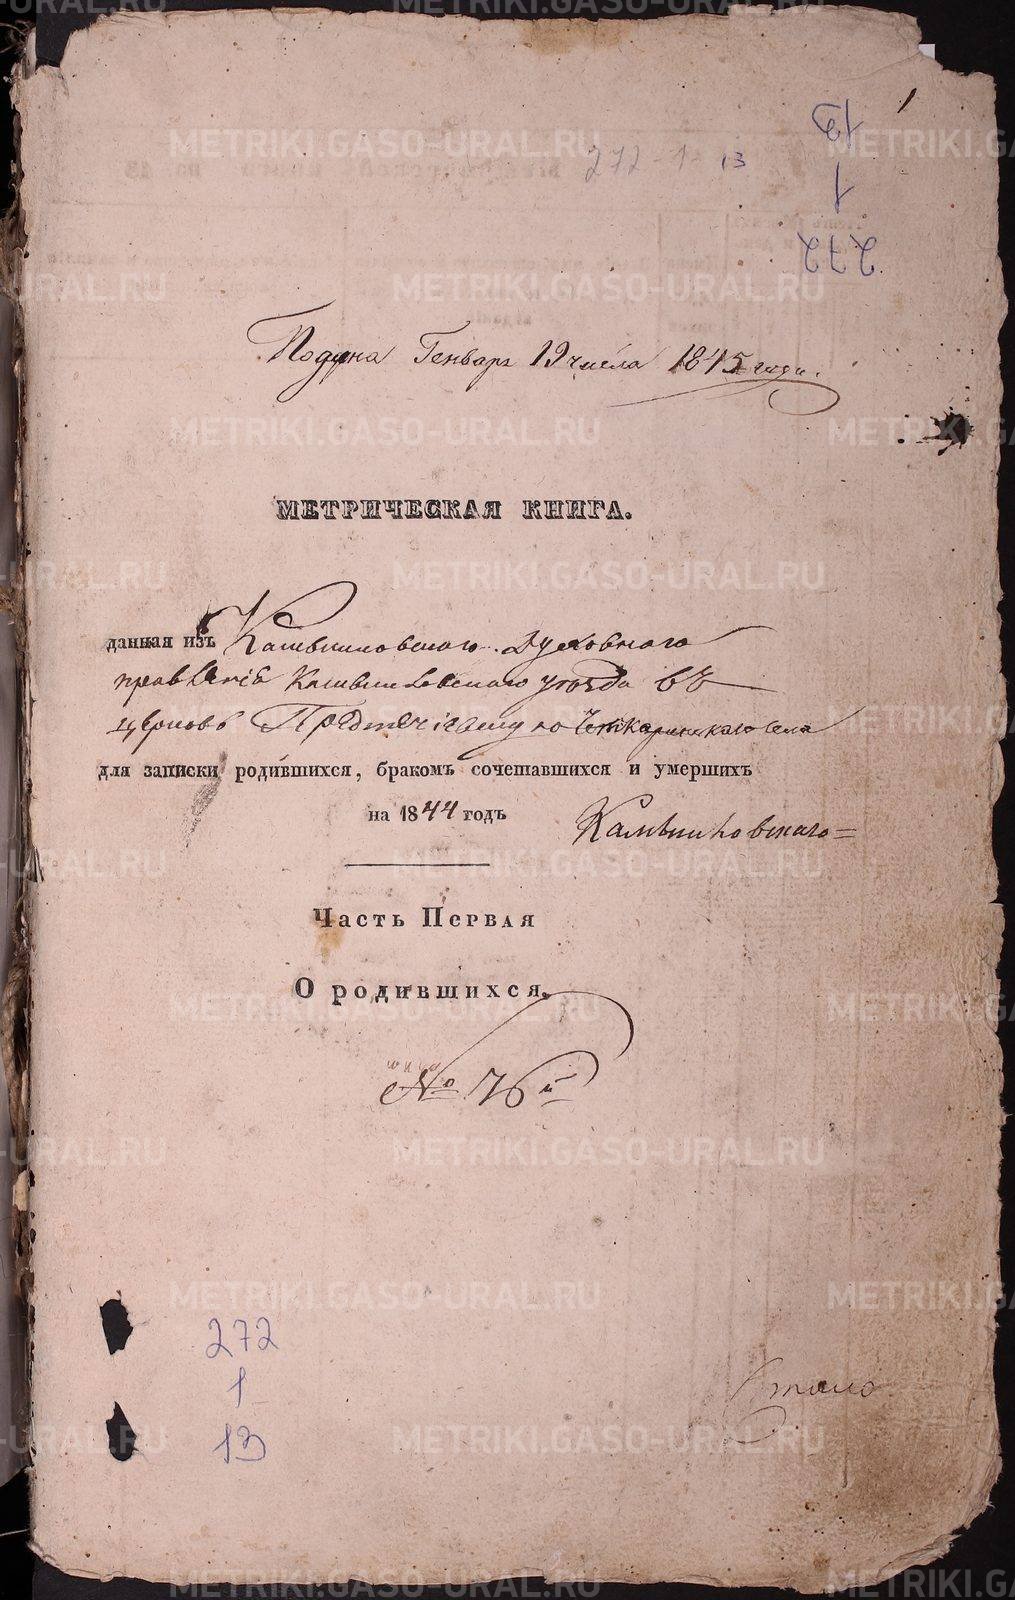 1
13
1
272
272-1-13
Подана Генваря 19 числа 1845 года.
МЕТРИЧЕСКАЯ КНИГА.
данная изъ Камышловскаго Духовнаго
правленія Камышловскаго уѣзда въ
церковь Предтечіевскую Четкаринскаго села
для записки родившихся, бракомъ сочетавшихся и умершихъ
на 1844 годъ
Камышловскаго=
Часть Первая
О родившихся.
№ 76й
272
1
13
METRIKI.GASO-URAL.RU